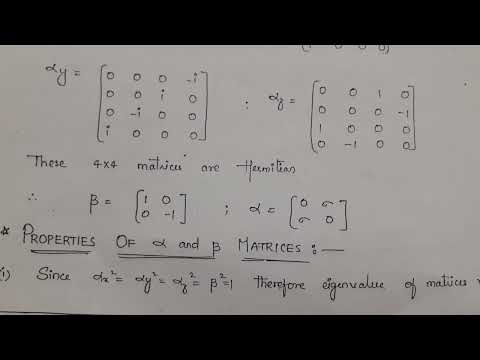 (1 0 0 0)
αy = [0 0 0 -i
0 0 i 0
0 -i 0 0
i 0 0 0] ; αz = [0 0 1 0
0 0 0 -1
1 0 0 0
0 -1 0 0]
These 4x4 matrices are Hermitian
∴ β = [1 0
0 -1] ; α = [0 σ
σ 0]
* PROPERTIES OF α and β MATRICES :—
(i) Since αx² = αy² = αz² = β² = 1 therefore eigenvalue of matrices